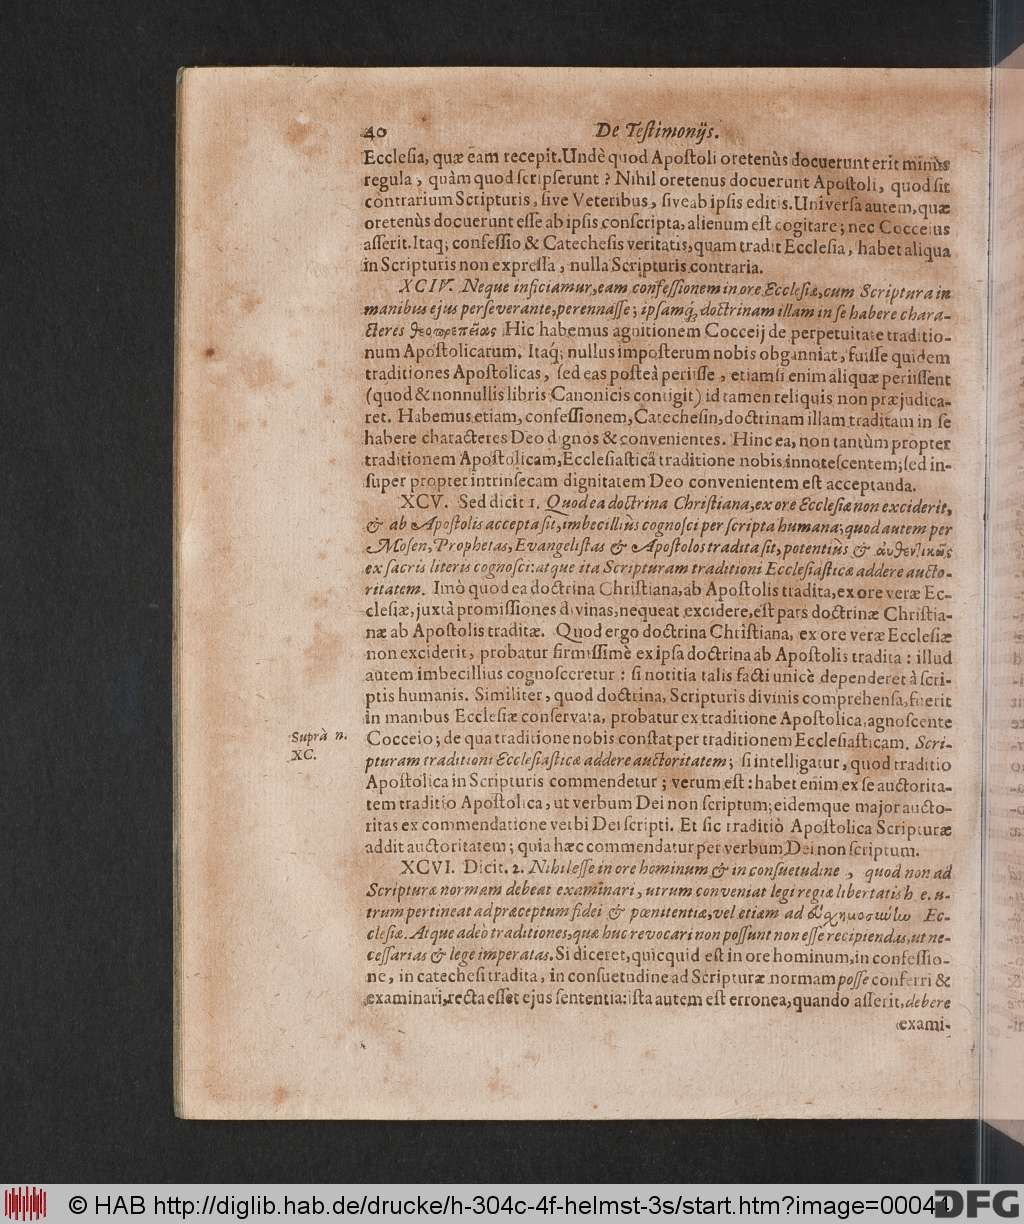 40 De Teſtimonijs.
Eccleſia, quæ eam recepit. Undè quod Apoſtoli oretenùs docuerunt erit minùs
regula, quàm quod ſcripſerunt? Nihil oretenus docuerunt Apoſtoli, quod ſit
contrarium Scripturis, ſive Veteribus, ſive ab ipſis editis. Univerſa autem, quæ
oretenùs docuerunt eſſe ab ipſis conſcripta, alienum eſt cogitare; nec Cocceius
aſſerit. Itaq; confeſſio & Catecheſis veritatis, quam tradit Eccleſia, habet aliqua
in Scripturis non expreſſa, nulla Scripturis contraria.
XCIV. Neque inficiamur, eam confeſſionem in ore Eccleſiæ, cum Scriptura in
manibus ejus perſeverante, perennaſſe; ipſamq́; doctrinam illam in ſe habere chara-
cteres θεοπρεπείας Hic habemus agnitionem Cocceij de perpetuitate traditio-
num Apoſtolicarum. Itaq́; nullus impoſterum nobis obganniat, fuiſſe quidem
traditiones Apoſtolicas, ſed eas poſteà periiſſe, etiamſi enim aliquæ periiſſent
(quod & nonnullis libris Canonicis contigit) id tamen reliquis non præjudica-
ret. Habemus etiam, confeſſionem, Catecheſin, doctrinam illam traditam in ſe
habere characteres Deo dignos & convenientes. Hinc ea, non tantùm propter
traditionem Apoſtolicam, Eccleſiaſticâ traditione nobis innoteſcentem; ſed in-
ſuper propter intrinſecam dignitatem Deo convenientem eſt acceptanda.
XCV. Sed dicit 1. Quod ea doctrina Chriſtiana, ex ore Eccleſiæ non exciderit,
& ab Apoſtolis accepta ſit, imbecilliùs cognoſci per ſcripta humana; quod autem per
Moſen, Prophetas, Evangeliſtas & Apoſtolos tradita ſit, potentiùs & αὐθεντικῶς
ex ſacris literis cognoſci: atque ita Scripturam traditioni Eccleſiaſticæ addere aucto-
ritatem. Imò quod ea doctrina Chriſtiana, ab Apoſtolis tradita, ex ore veræ Ec-
cleſiæ, juxtà promiſſiones divinas, nequeat excidere, eſt pars doctrinæ Chriſtia-
næ ab Apoſtolis traditæ. Quod ergo doctrina Chriſtiana, ex ore veræ Eccleſiæ
non exciderit, probatur firmiſſimè ex ipſa doctrina ab Apoſtolis tradita: illud
autem imbecillius cognoſceretur: ſi notitia talis facti unicè dependeret à ſcri-
ptis humanis. Similiter, quod doctrina, Scripturis divinis comprehenſa, fuerit
in manibus Eccleſiæ conſervata, probatur ex traditione Apoſtolica, agnoſcente
Suprà n. XC.
Cocceio; de qua traditione nobis conſtat per traditionem Eccleſiaſticam. Scri-
pturam traditioni Eccleſiaſticæ addere auctoritatem; ſi intelligatur, quod traditio
Apoſtolica in Scripturis commendetur; verum eſt: habet enim ex ſe auctorita-
tem traditio Apoſtolica, ut verbum Dei non ſcriptum; eidemque major aucto-
ritas ex commendatione verbi Dei ſcripti. Et ſic traditiò Apoſtolica Scripturæ
addit auctoritatem; quia hæc commendatur per verbum Dei non ſcriptum.
XCVI. Dicit. 2. Nihil eſſe in ore hominum & in conſuetudine, quod non ad
Scripturæ normam debeat examinari, utrum conveniat legi regiæ libertatis h. e. u-
trum pertineat ad præceptum fidei & pœnitentiæ, vel etiam ad Ec-
cleſiæ. Atque adeò traditiones, quæ huc revocari non poſſunt non eſſe recipiendas, ut ne-
ceſſarias & lege imperatas. Si diceret, quicquid eſt in ore hominum, in confeſſio-
ne, in catecheſi tradita, in conſuetudine ad Scripturæ normam poſſe conferri &
examinari, recta eſſet ejus ſententia: iſta autem eſt erronea, quando aſſerit, debere
exami-
© HAB http://diglib.hab.de/drucke/h-304c-4f-helmst-3s/start.htm?image=00044
DFG